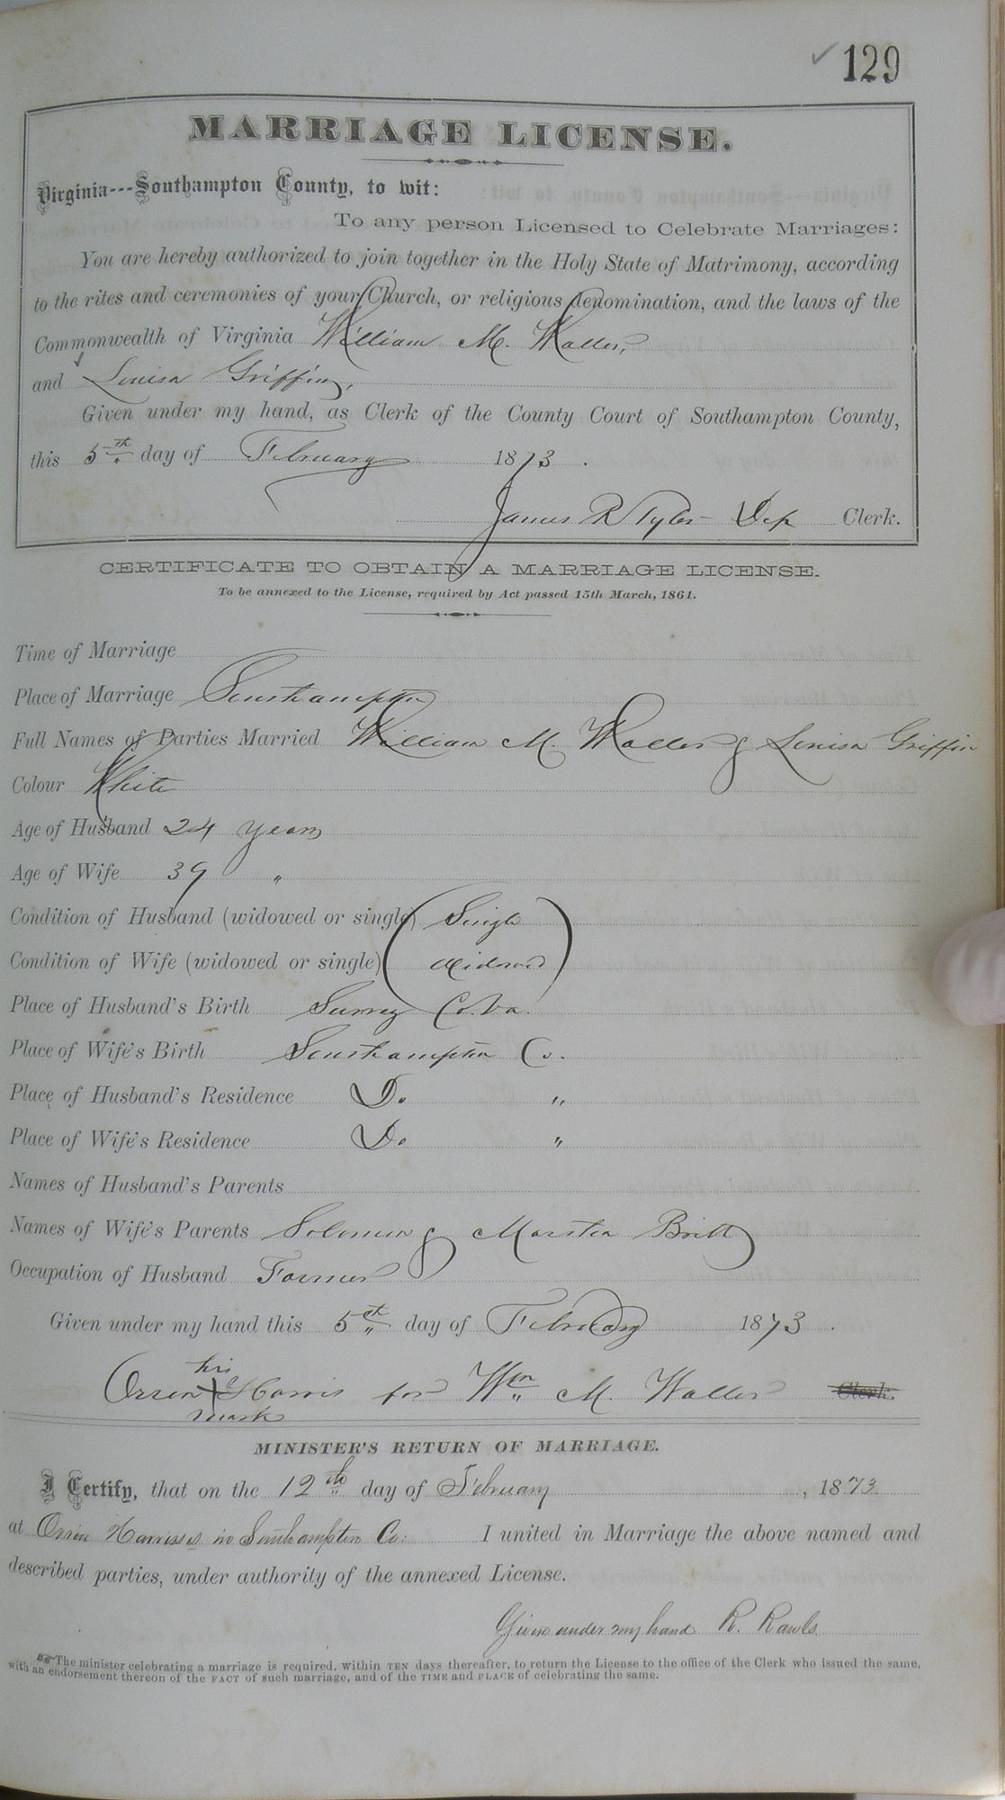 ✓ 129
MARRIAGE LICENSE.
Virginia---Southampton County, to wit:
To any person Licensed to Celebrate Marriages:
You are hereby authorized to join together in the Holy State of Matrimony, according
to the rites and ceremonies of your Church, or religious denomination, and the laws of the
Commonwealth of Virginia William M. Waller,
and Louisa Griffin,
Given under my hand, as Clerk of the County Court of Southampton County,
this 5th day of February 1873.
James R Tyler Dep Clerk.
CERTIFICATE TO OBTAIN A MARRIAGE LICENSE.
To be annexed to the License, required by Act passed 15th March, 1861.
Time of Marriage
Place of Marriage Southampton
Full Names of Parties Married William M. Waller & Louisa Griffin
Colour White
Age of Husband 24 years
Age of Wife 39 "
Condition of Husband (widowed or single) Single
Condition of Wife (widowed or single) Widowed
Place of Husband's Birth Surry Co. Va.
Place of Wife's Birth Southampton Co.
Place of Husband's Residence Do "
Place of Wife's Residence Do "
Names of Husband's Parents
Names of Wife's Parents Solomon & Martha Britt
Occupation of Husband Farmer
Given under my hand this 5th day of February 1873.
his
Orren X Harris for Wm M. Waller Clerk.
mark
MINISTER'S RETURN OF MARRIAGE.
I Certify, that on the 12th day of February, 1873.
at Orren Harrises in Southampton Co: I united in Marriage the above named and
described parties, under authority of the annexed License.
Given under my hand R. Rawls
The minister celebrating a marriage is required, within TEN days thereafter, to return the License to the office of the Clerk who issued the same,
with an endorsement thereof of the FACT of such marriage, and of the TIME and PLACE of celebrating the same.